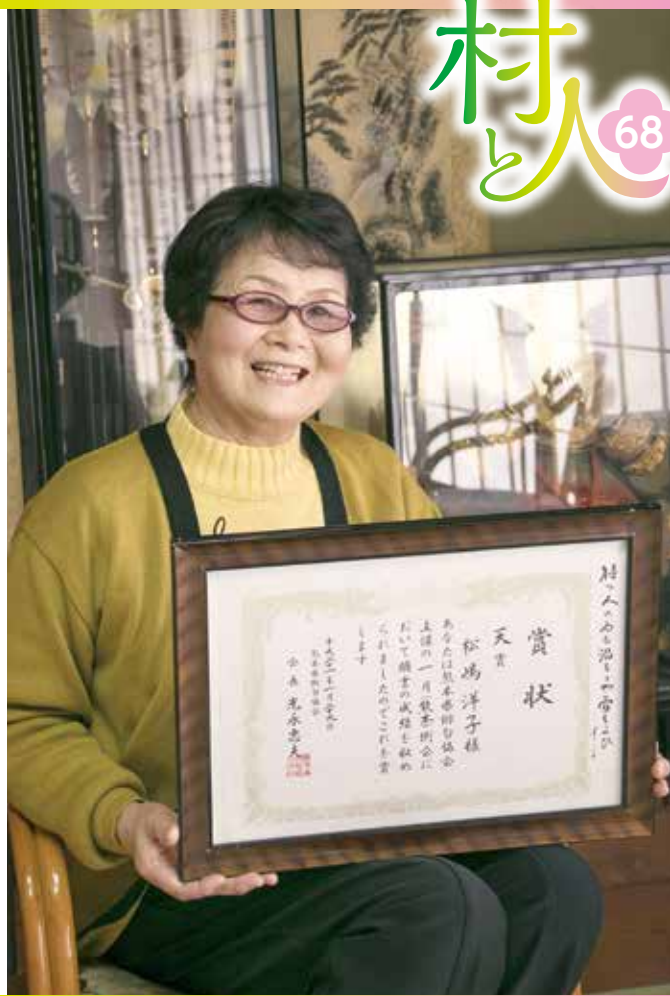 村と人
68
賞状
天賞
松嶋洋子様
あなたは熊本県俳句協会
主催の一月熊本例会に
おいて頭書の成績を収め
られましたのでこれを賞
します
熊本県俳句協会
会長 光永忠夫